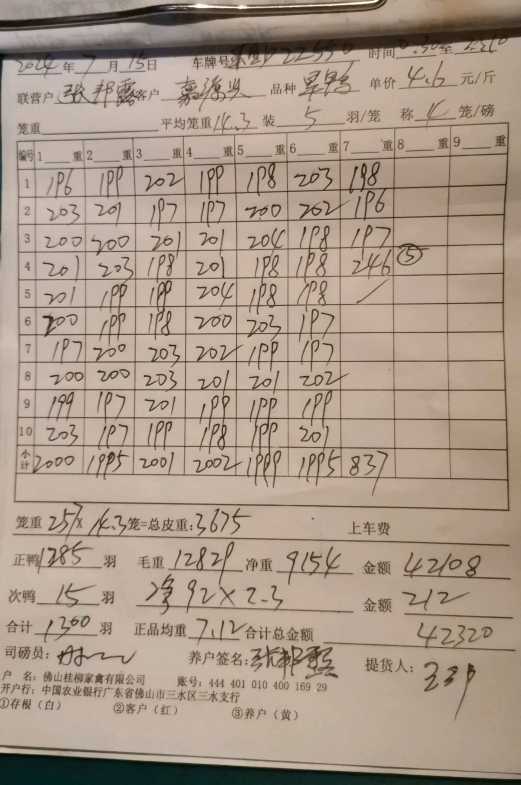 2024 年 7 月 15 日 车牌号 22550 时间 0:30 至
联营户 张邦露 客户 嘉源兴 品种 旱鸭 单价 4.6 元/斤
笼重 平均笼重 14.3 装 5 羽/笼 称 4 笼/磅
编号 1 重 2 重 3 重 4 重 5 重 6 重 7 重 8 重 9 重
1 196 199 202 199 198 203 198
2 203 201 197 197 200 202 196
3 200 200 201 201 204 198 197
4 201 203 198 201 198 198 246 ⑤
5 201 199 199 204 198 198 ✓
6 200 199 198 200 203 197
7 197 200 203 202 199 197
8 200 200 203 201 201 202
9 199 197 201 199 199 199
10 203 197 199 198 199 201
小计 2000 1995 2001 2002 1999 1995 837
笼重 257 × 14.3 笼=总皮重: 3675 上车费
正鸭 1285 羽 毛重 12829 净重 9154 金额 42108
次鸭 15 羽 净 92 × 2.3 金额 212
合计 1300 羽 正品均重 7.12 合计总金额 42320
司磅员: 养户签名: 张邦露 提货人:
户 名: 佛山桂柳家禽有限公司 账号: 444 401 010 400 169 29
开户行: 中国农业银行广东省佛山市三水区三水支行
①存根（白） ②客户（红） ③养户（黄）